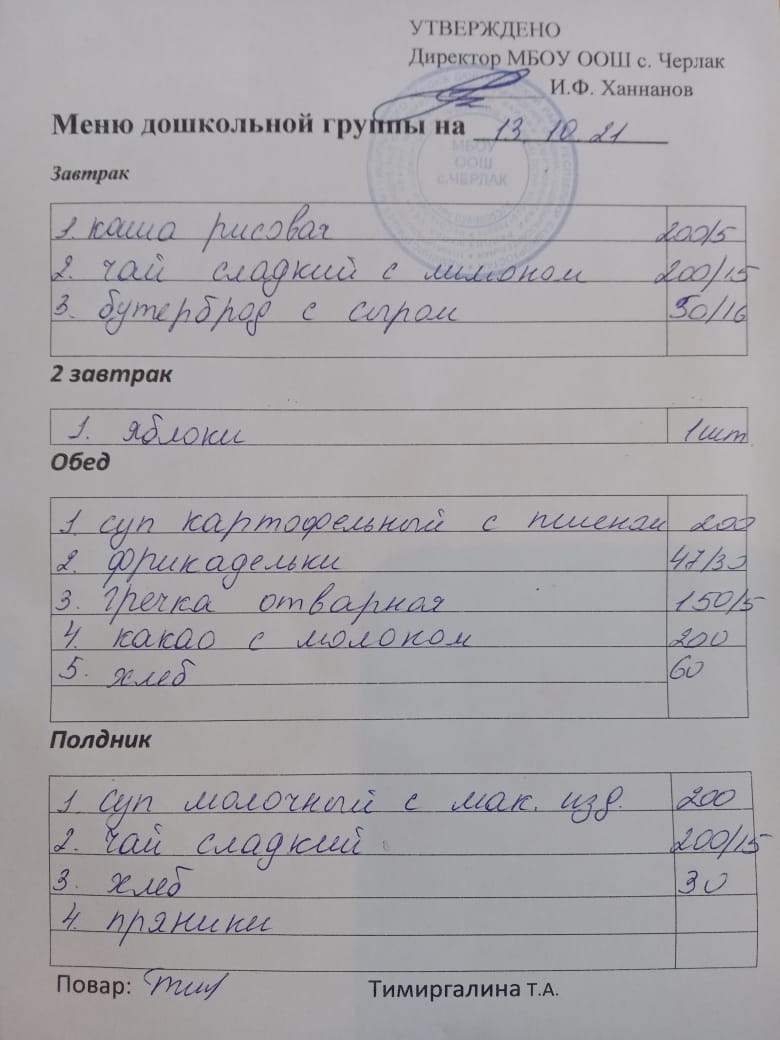 УТВЕРЖДЕНО
Директор МБОУ ООШ с. Черлак
И.Ф. Ханнанов
Меню дошкольной группы на 13. 10. 21
МБОУ
ООШ
с.ЧЕРЛАК
Завтрак
1. каша рисовая 200/5
2. чай сладкий с лимоном 200/15
3. бутерброд с сыром 50/16
2 завтрак
1. яблоки 1шт
Обед
1 суп картофельный с пшеном 200
2. фрикадельки 47/30
3. гречка отварная 150/5
4. какао с молоком 200
5. хлеб 60
Полдник
1 суп молочный с мак. изд. 200
2. чай сладкий 200/15
3. хлеб 30
4. пряники
Повар: Тимиргалина Т.А.